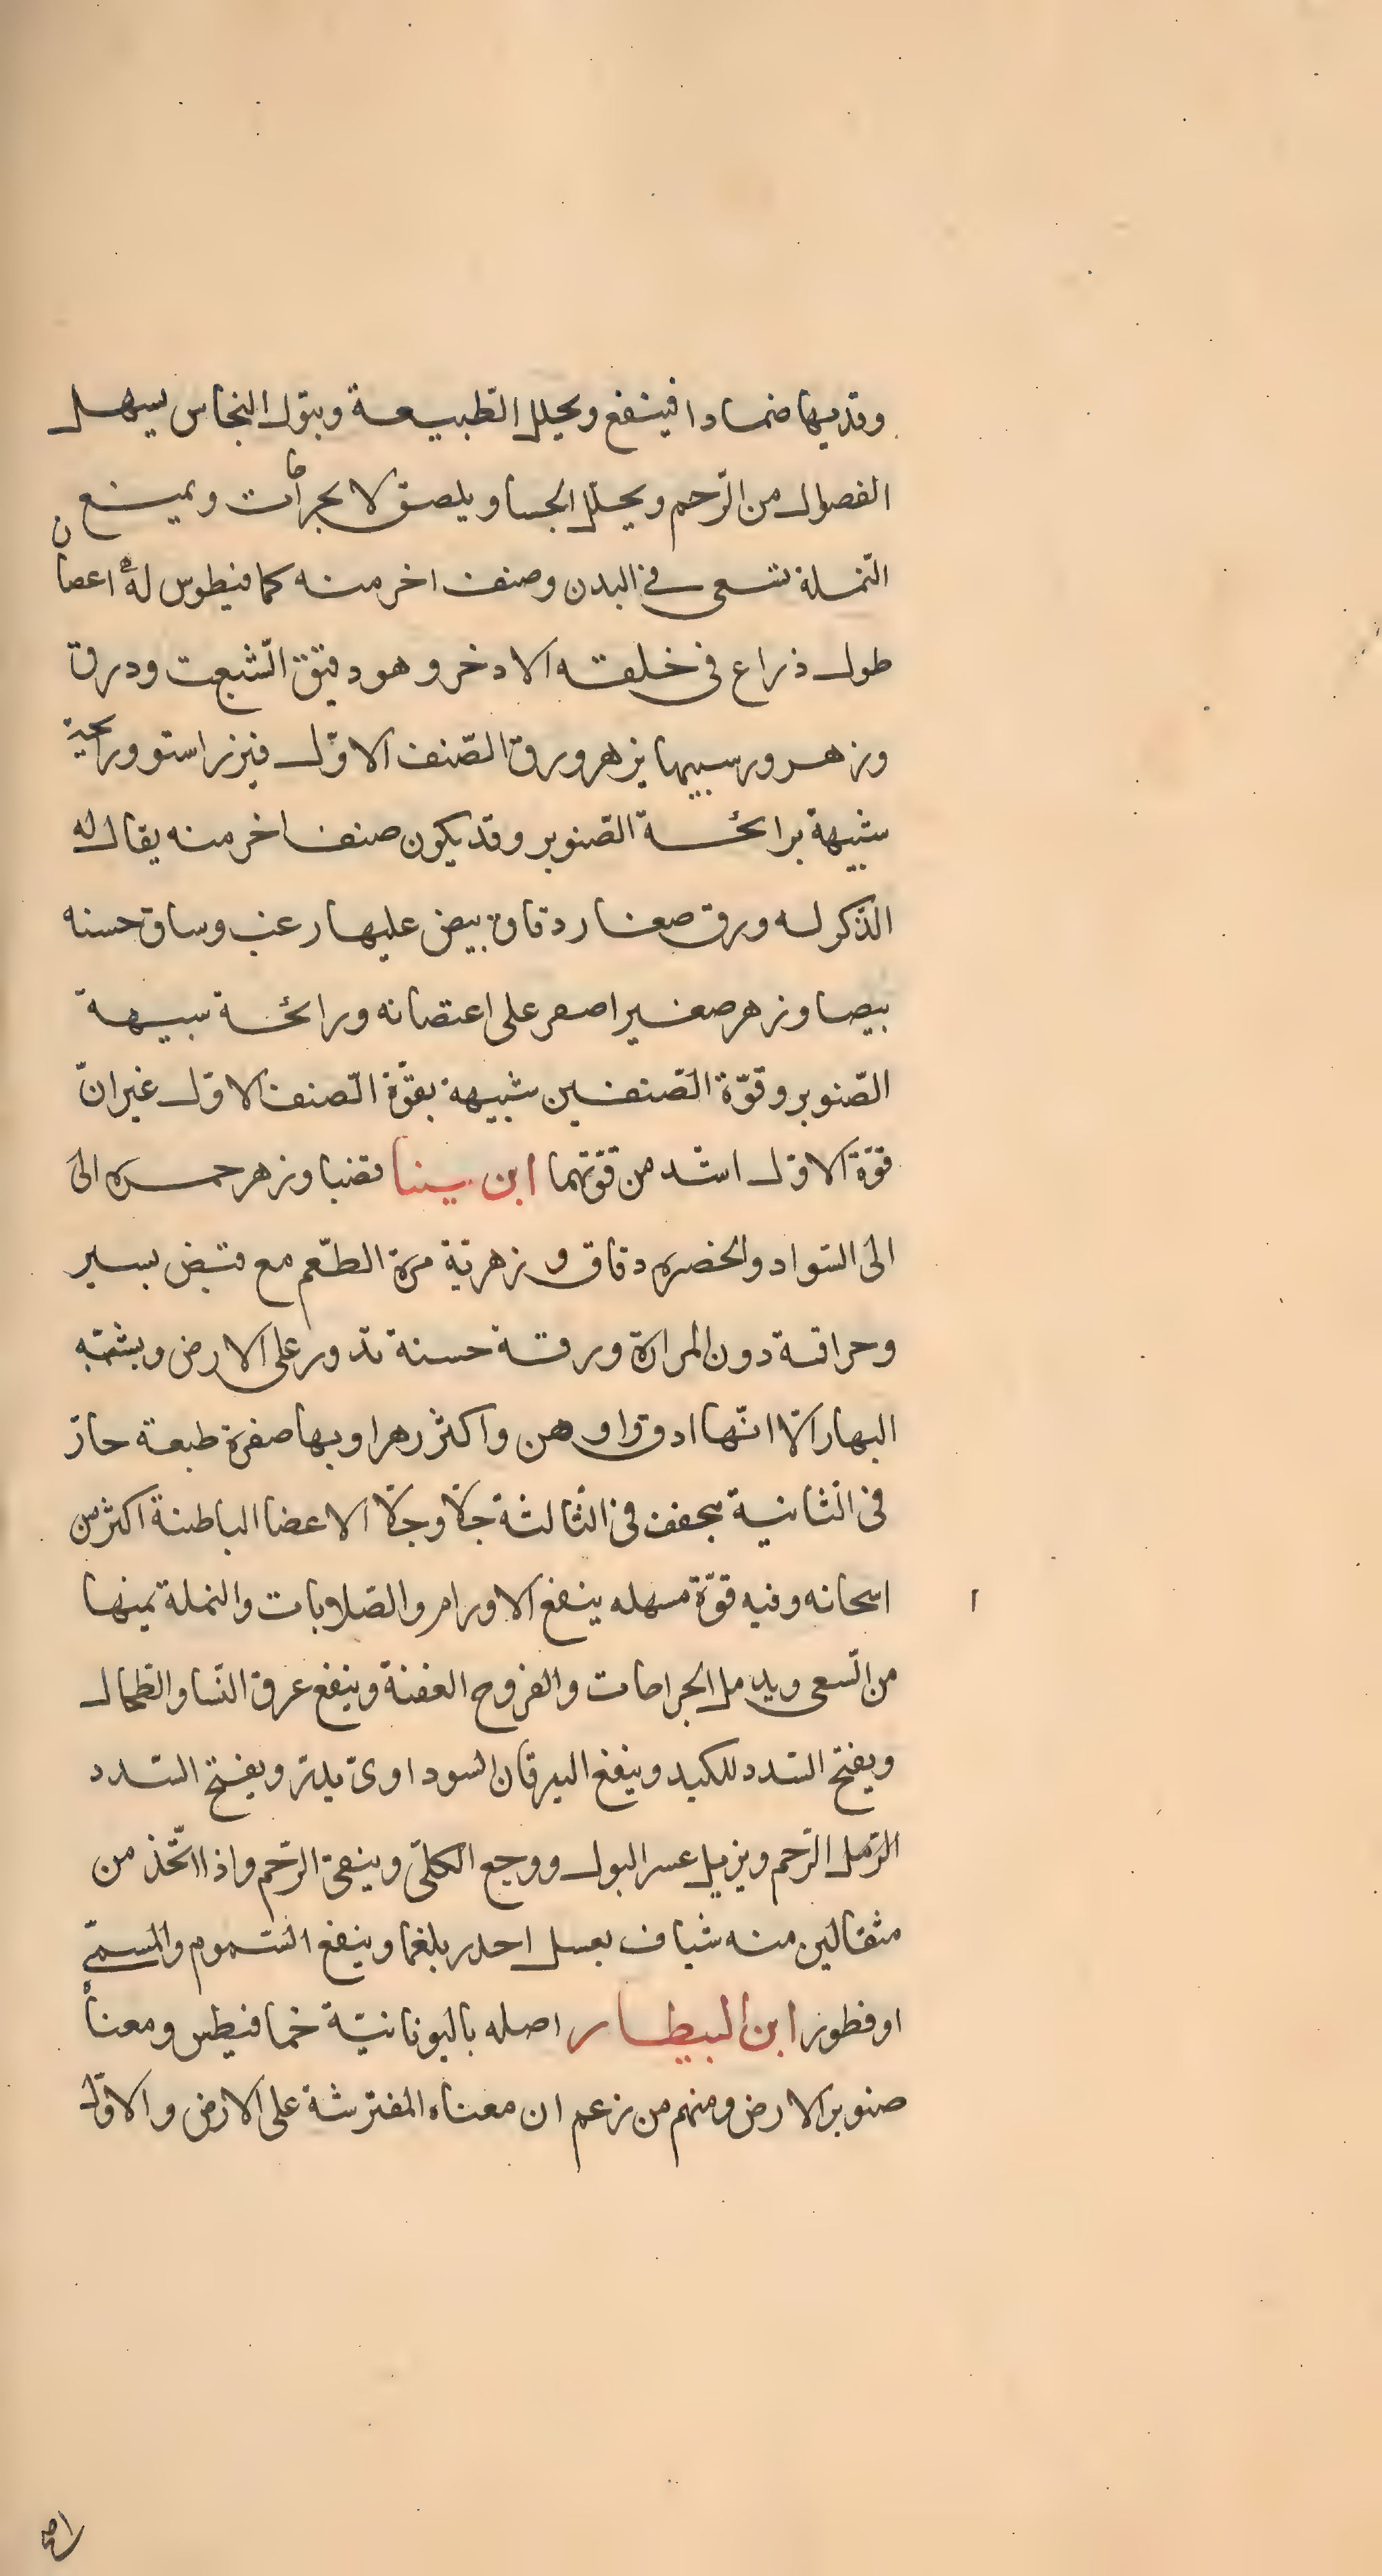 وقد يهيا ضمادا فينفع ويحلل الطبيعة وبتوك النحاس يسهل
الفصول من الرحم ويحلل الجسا ويلصق الاجراحات ويمنع
النملة تسعى في البدن وصنف اخر منه كمافيطوس له اعصان
طول ذراع في خلقته الادخر وهو دقيق الشبعت ودرق
وزهر ورسبيها بزهر ورق الصنف الاول فيزر استو ورايحية
شبيهة برائحة الصنوبر وقد يكون صنف اخر منه يقال له
الذكر له ورق صغار دقاق بيض عليها رغب وساق حسنه
بيصا وزهر صغير اصعر على اعتصانه ورائحة سبيهة
الصنوبر وقوة الصنفين شبيهة بقوة الصنف الاول غير ان
قوة الاول اشد من قوتهما ابن سينا مقنبا وزهر حمره الى
الى السواد والخضره دقاق وزهرية مرة الطعم مع قبض يسير
وحرافة دون المرارة ورقة حسنة تدور على الارض ويشبه
البهار الا انها ادق واوهن واكثر رهرا وبها صفرة طبعة حار
في الثانية مجفف في الثالثة جلا وجلا الاعضا الباطنة اكثر من
اسحانه وفيه قوة مسهله ينفع الاورام والصلابات والنملة يمنها
من السعى ويدمل الجراحات والقروح العفنة وينفع عرق النسا والطحال
ويفتح السدد للكبد وينفع اليرقان السوداوى يدر ويفتح السدد
الرمل الرحم ويزيل عسر البول ووجع الكلى وينقى الرحم واذا اتخذ من
مثقالين منه شياف بعسل احدر بلغما وينفع السموم والمسمى
اوفطون ابن البيطار اصله باليونانية خمافيطس ومعناه
صنوبر الارض ومنهم من زعم ان معناه المفترشة على الارض والاول